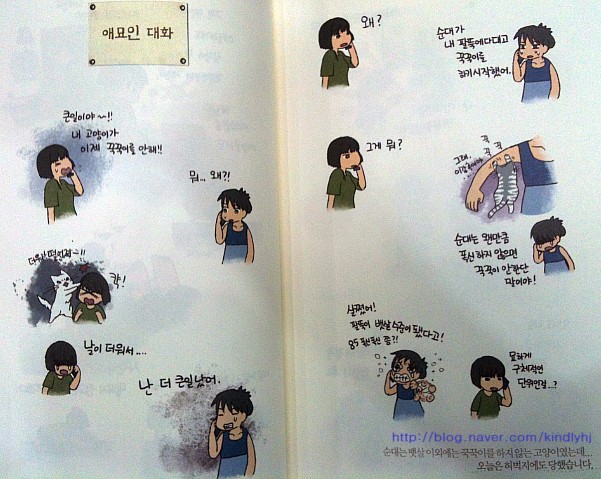 애묘인 대화
큰일이야~!!
내 고양이가
이제 꾹꾹이를 안해!!
뭐.., 왜?!
칵!
낮이 더워서....
난 더 큰일났어.
왜?
순대가
내 팔뚝에다대고
꾹꾹이를
하기시작했어.
그게 뭐?
꾹
꾹
꾹
순대는 왠만큼
푹신하지 않으면
꾹꾹이 안한단
말이야!
살쪘어!
팔뚝이 뱃살수준이 됐다고!
묘하게
구체적인
단위인걸..?
http://blog.naver.com/kindlyhj
순대는 뱃살 이외에는 꾹꾹이를 하지 않는 고양이였는데...
오늘은 허벅지에도 당했습니다.